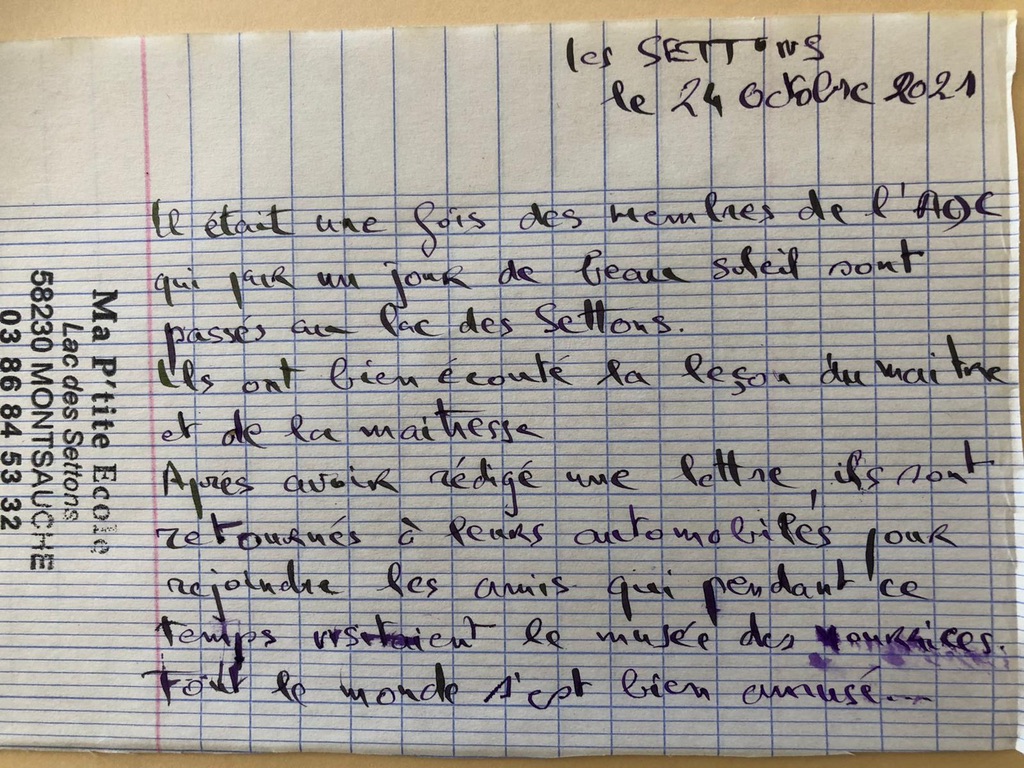 les SETTONS
le 24 octobre 2021
Il était une fois des membres de l'AOC
qui par un jour de beau soleil sont
passés au lac des Settons.
Ils ont bien écouté la leçon du maitre
et de la maitresse
Après avoir rédigé une lettre, ils sont
retournés à leurs automobiles pour
rejoindre les amis qui pendant ce
temps visitaient le musée des nourrices.
Tout le monde s'est bien amusé...
Ma P'tite Ecole
Lac des Settons
58230 MONTSAUCHE
03 86 84 53 32